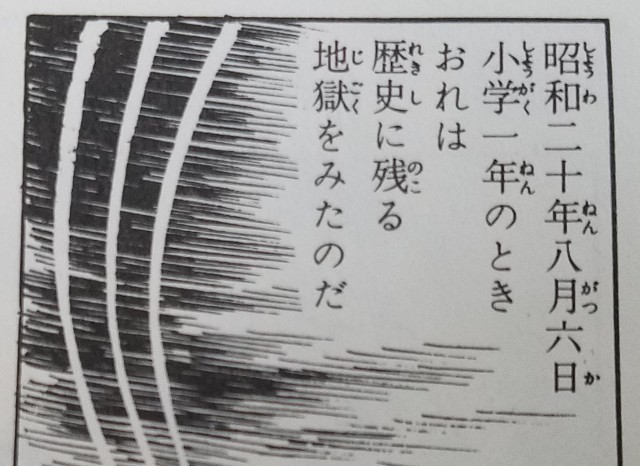 昭和二十年八月六日
小学一年のとき
おれは
歴史に残る
地獄をみたのだ